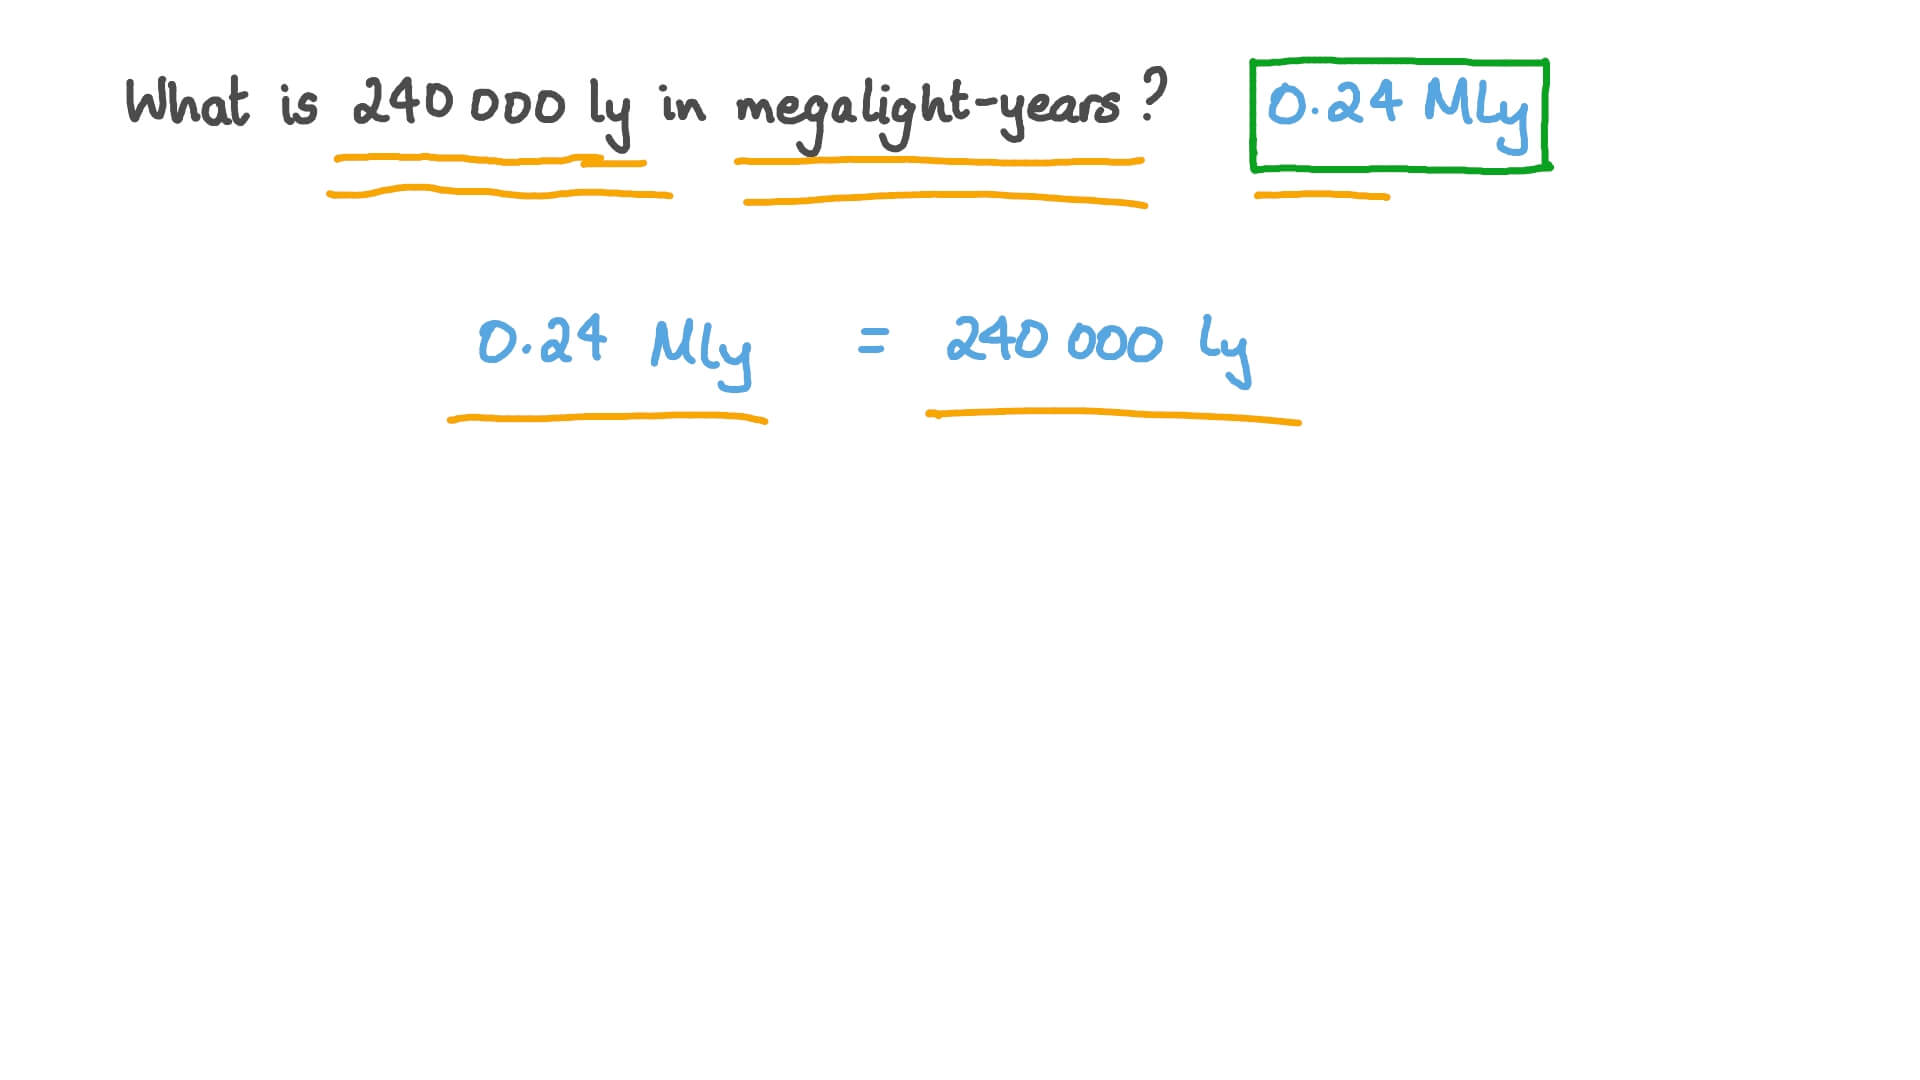 What is 240 000 ly in megalight-years? 0.24 Mly
0.24 Mly = 240 000 ly